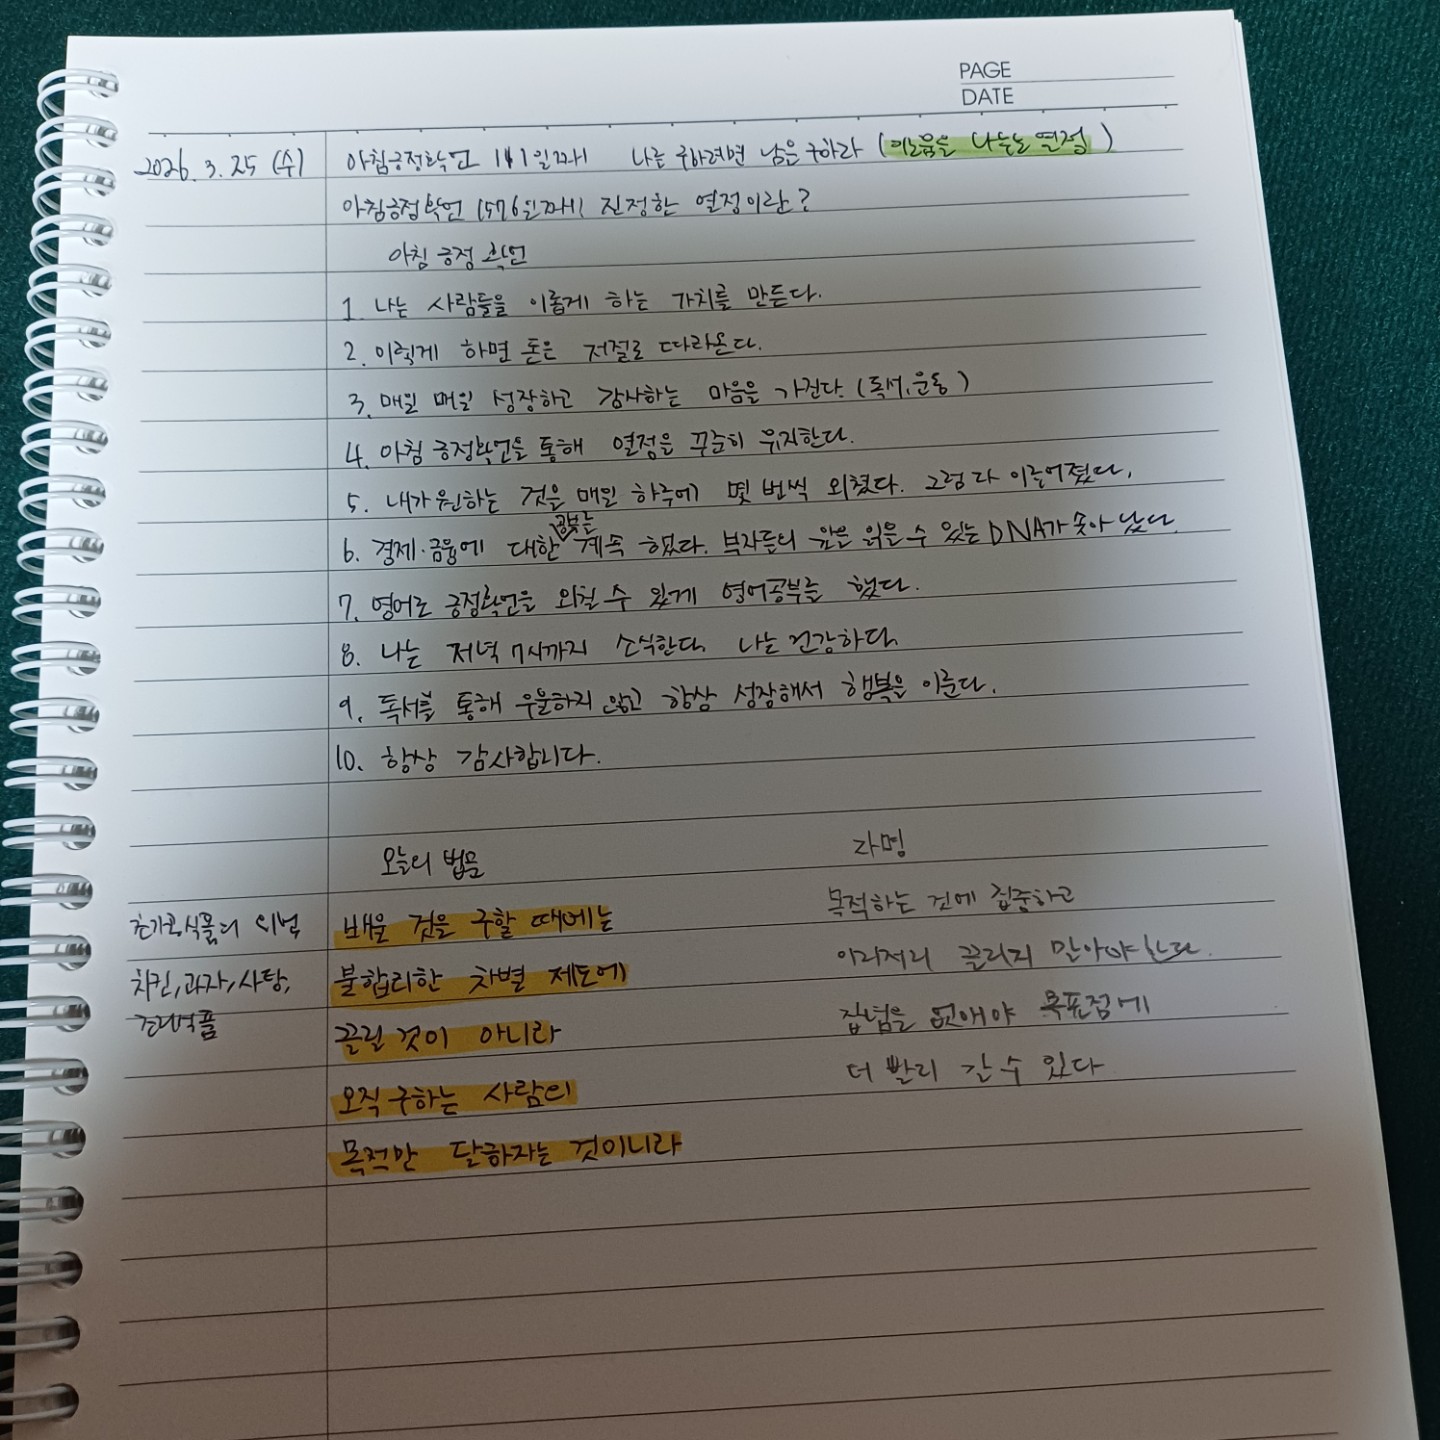 PAGE
DATE
2026. 3. 25 (수) 아침긍정확언 141일째 나를 구하려면 남을 구하라 (이로움을 나누는 열정)
아침긍정확언 1576일째 진정한 열정이란?
아침 긍정 확언
1. 나는 사람들을 이롭게 하는 가치를 만든다.
2. 이렇게 하면 돈은 저절로 따라온다.
3. 매일 매일 성장하고 감사하는 마음을 가진다. (독서, 운동)
4. 아침 긍정확언을 통해 열정을 꾸준히 유지한다.
5. 내가 원하는 것을 매일 하루에 몇 번씩 외쳤다. 그럼 다 이루어졌다.
6. 경제·금융에 대한 공부를 계속 했다. 부자들의 앞을 읽을 수 있는 DNA가 솟아 났다.
7. 영어로 긍정확언을 외칠 수 있게 영어공부를 했다.
8. 나는 저녁 7시까지 소식한다. 나는 건강하다.
9. 독서를 통해 우울하지 않고 항상 성장해서 행복을 이룬다.
10. 항상 감사합니다.
오늘의 법문
라멍
초가공식품의 위법
치킨, 과자, 사탕,
배움 것을 구할 때에는
불합리한 차별 제도에
끌릴 것이 아니라
오직 구하는 사람의
목적만 달하자는 것이니라
목적하는 것에 집중하고
이리저리 끌리지 말아야 한다.
집념을 없애야 목표점에
더 빨리 갈 수 있다